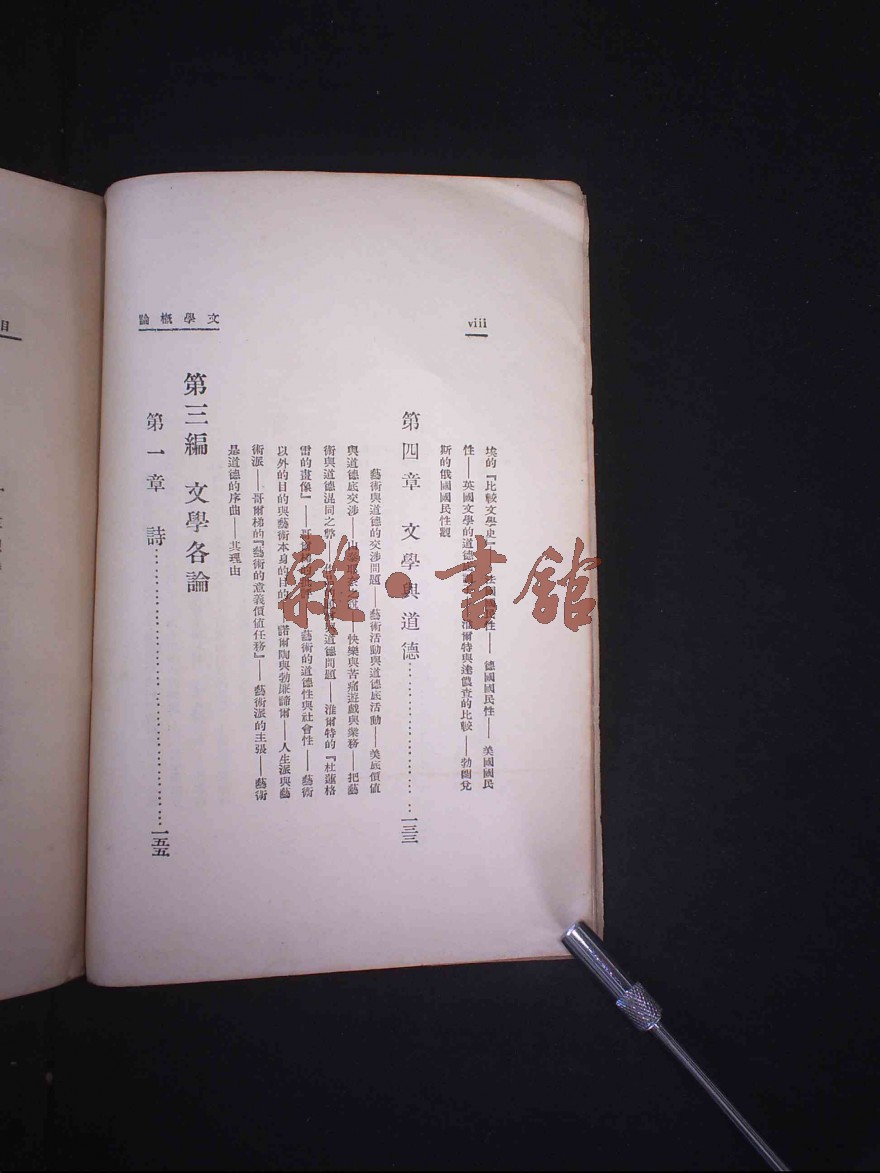 viii
文學概論
埃的『比較文學史』 法國 性——德國國民性——美國國民
性——英國文學的道德 淮爾特與達 查的比較——勃蘭兌
斯的俄國國民性觀
第四章 文學與道德……………………一三三
藝術與道德的交涉問題——藝術活動與道德底活動——美底價值
與道德底交涉—— 快樂與苦痛遊戲與業務——把藝
術與道德混同之弊—— 與道德問題——淮爾特的『杜蓮格
雷的畫像』—— 藝術的道德性與社會性——藝術
以外的目的與藝術本身的目的 諾爾陶與勃廉諦爾——人生派與藝
術派——哥爾梯的『藝術的意義價值任務』——藝術派的主張——藝術
是道德的序曲——其理由
第三編 文學各論
第一章 詩……………………一五五
目
雜·書館